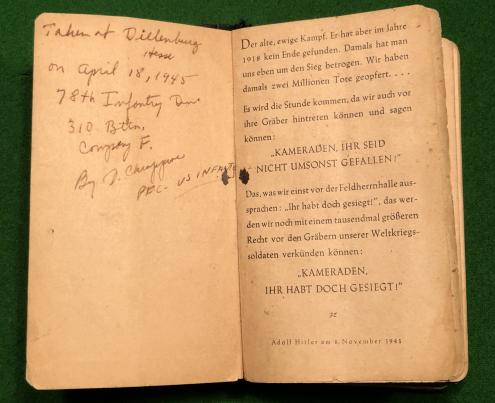 Taken at Dillenburg
Hesse
on April 18, 1945
78th Infantry Div
310 Bttn,
Company F.
By
PFC - US INFANTRY
Der alte, ewige Kampf. Er hat aber im Jahre
1918 kein Ende gefunden. Damals hat man
uns eben um den Sieg betrogen. Wir haben
damals zwei Millionen Tote geopfert. . . .
Es wird die Stunde kommen, da wir auch vor
ihre Gräber hintreten können und sagen
können:
„KAMERADEN, IHR SEID
NICHT UMSONST GEFALLEN!"
Das, was wir einst vor der Feldherrnhalle aus-
sprachen: „Ihr habt doch gesiegt!", das wer-
den wir noch mit einem tausendmal größeren
Recht vor den Gräbern unserer Weltkriegs-
soldaten verkünden können:
„KAMERADEN,
IHR HABT DOCH GESIEGT!"
Adolf Hitler am 8. November